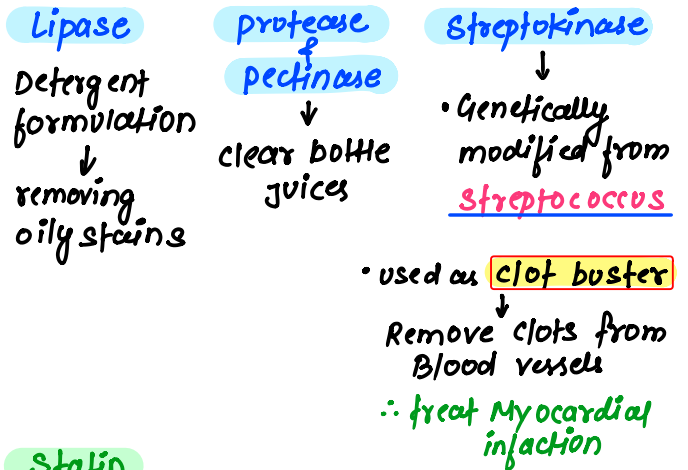 Lipase
Detergent
formulation
↓
removing
oily stains
Protease
&
Pectinase
↓
clear bottle
juices
Streptokinase
↓
• Genetically
modified from
Streptococcus
• used as clot buster
↓
Remove clots from
Blood vessels
∴ treat Myocardial
infaction
Statin